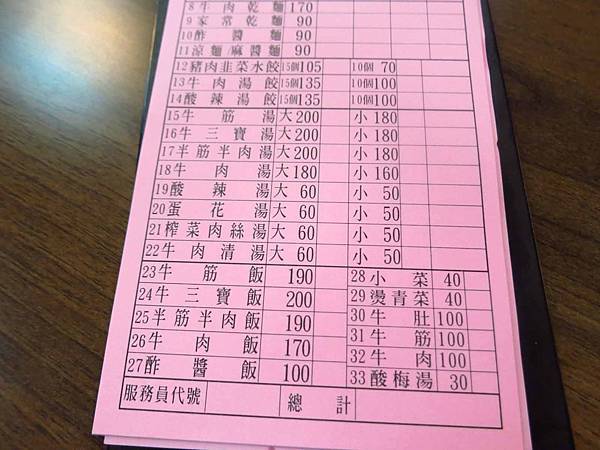 8 牛肉乾麵 170
9 家常乾麵 90
10 酢醬麵 90
11 涼麵/麻醬麵 90
12 豬肉韭菜水餃 15個105 10個 70
13 牛肉湯餃 15個135 10個100
14 酸辣湯餃 15個135 10個100
15 牛筋湯 大200 小180
16 牛三寶湯 大200 小180
17 半筋半肉湯 大200 小180
18 牛肉湯 大180 小160
19 酸辣湯 大 60 小 50
20 蛋花湯 大 60 小 50
21 榨菜肉絲湯 大 60 小 50
22 牛肉清湯 大 60 小 50
23 牛筋飯 190
24 牛三寶飯 200
25 半筋半肉飯 190
26 牛肉飯 170
27 酢醬飯 100
28 小菜 40
29 燙青菜 40
30 牛肚 100
31 牛筋 100
32 牛肉 100
33 酸梅湯 30
服務員代號 總計